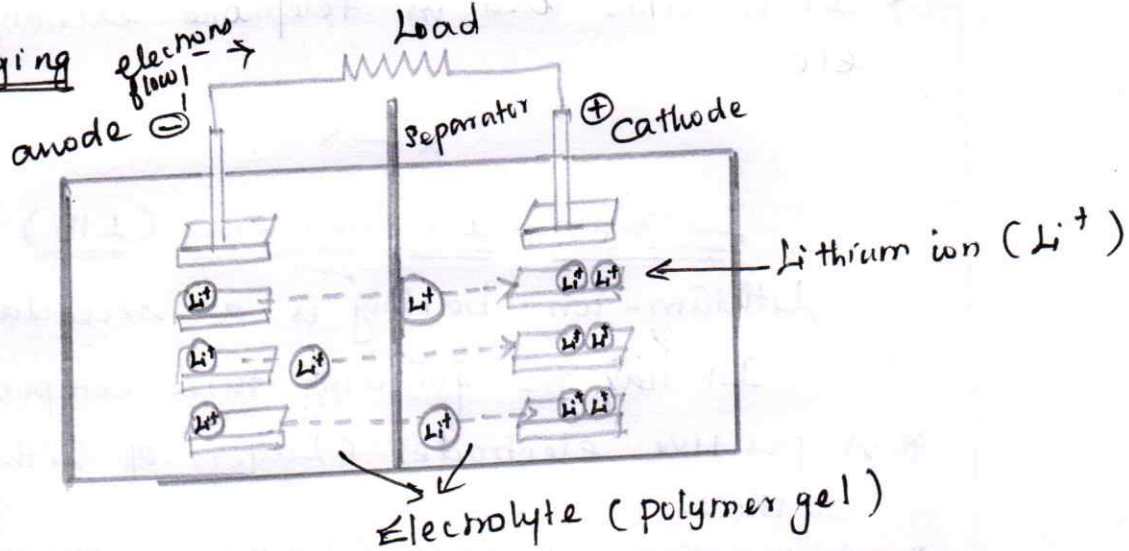 ging
electrons
flow
Load
anode ⊖
Separator
⊕ Cathode
Lithium ion (Li⁺)
Li⁺
Li⁺ Li⁺
Li⁺
Li⁺
Li⁺
Li⁺ Li⁺
Li⁺
Li⁺
Li⁺ Li⁺
Electrolyte (polymer gel)